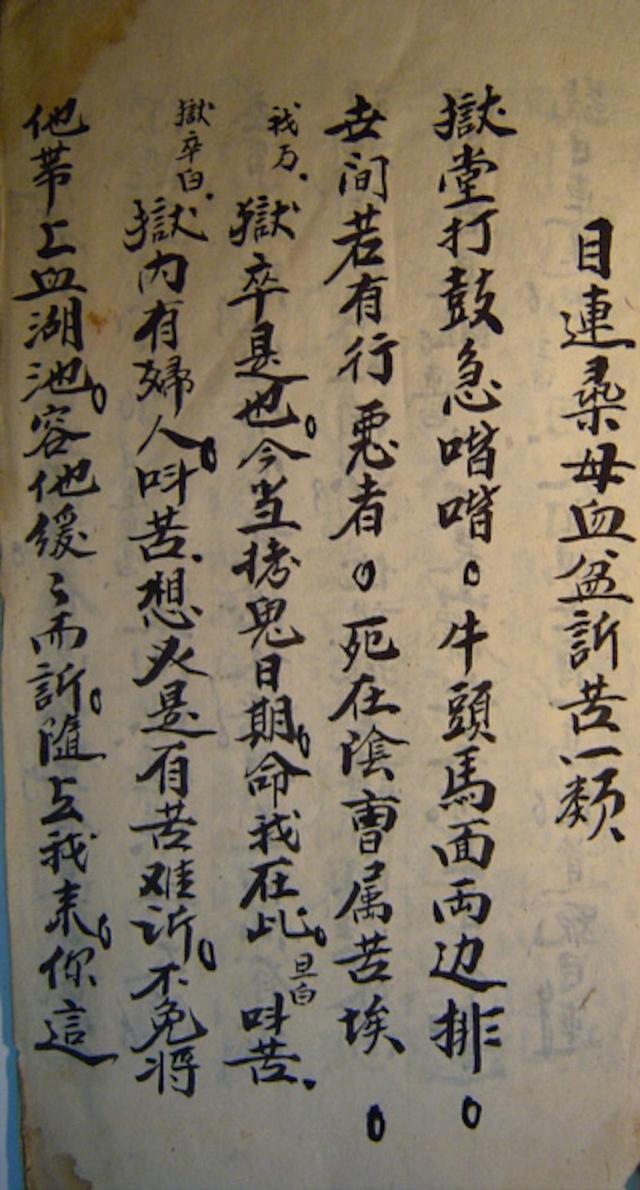 目連尋母血盆訴苦一類
獄堂打鼓急喈喈。牛頭馬面両边排。
世间若有行悪者。死在陰曹属苦埃。
我万.獄卒是也。今当拷鬼日期。命我在此。旦白 呌苦.
獄卒白.獄内有婦人。呌苦.想必是有苦难訴。不免将
他带上血湖池。容他缓〻而訴。隨上我来。你這